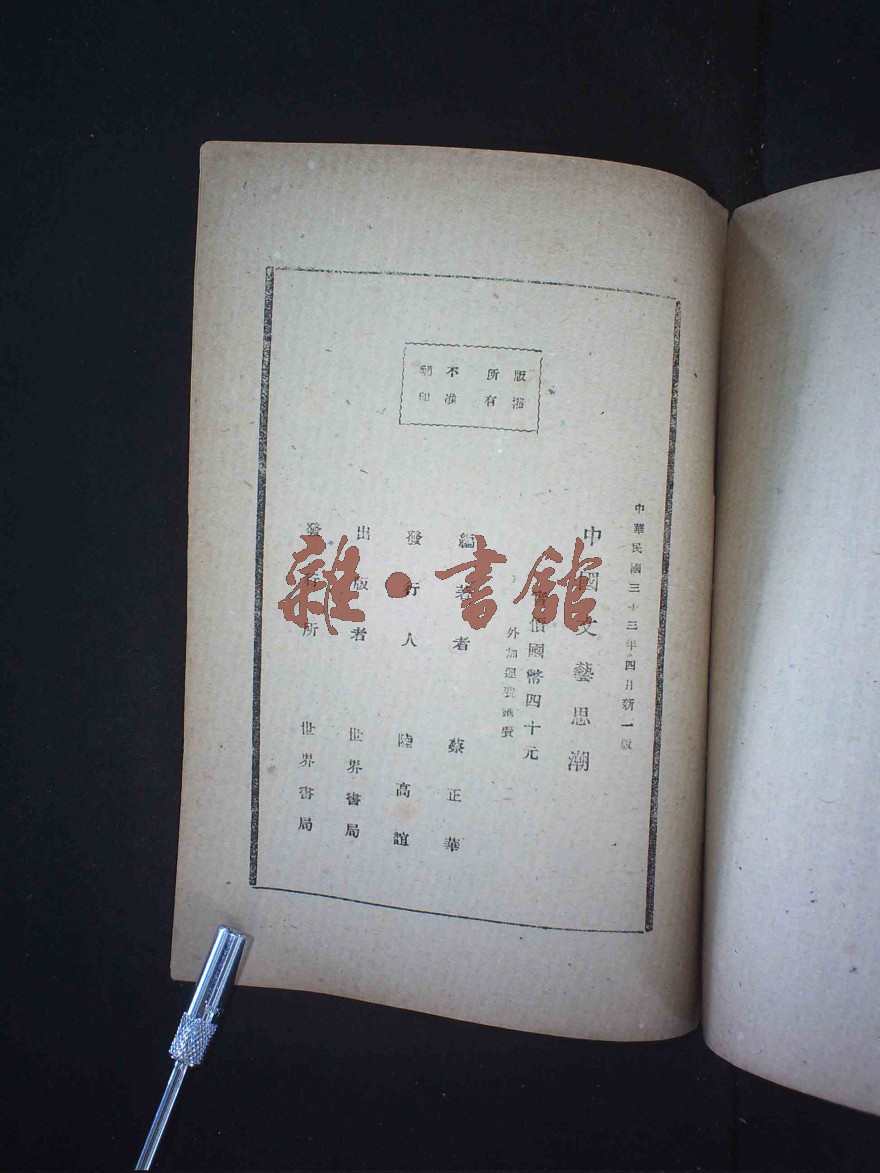 中華民國三十三年四月新一版
中國文藝思潮
實價國幣四十元
外加運費匯費
編著者 蔡正華
發行人 陸高誼
出版者 世界書局
發行所 世界書局
版權
所有
不准
翻印
雜·書館